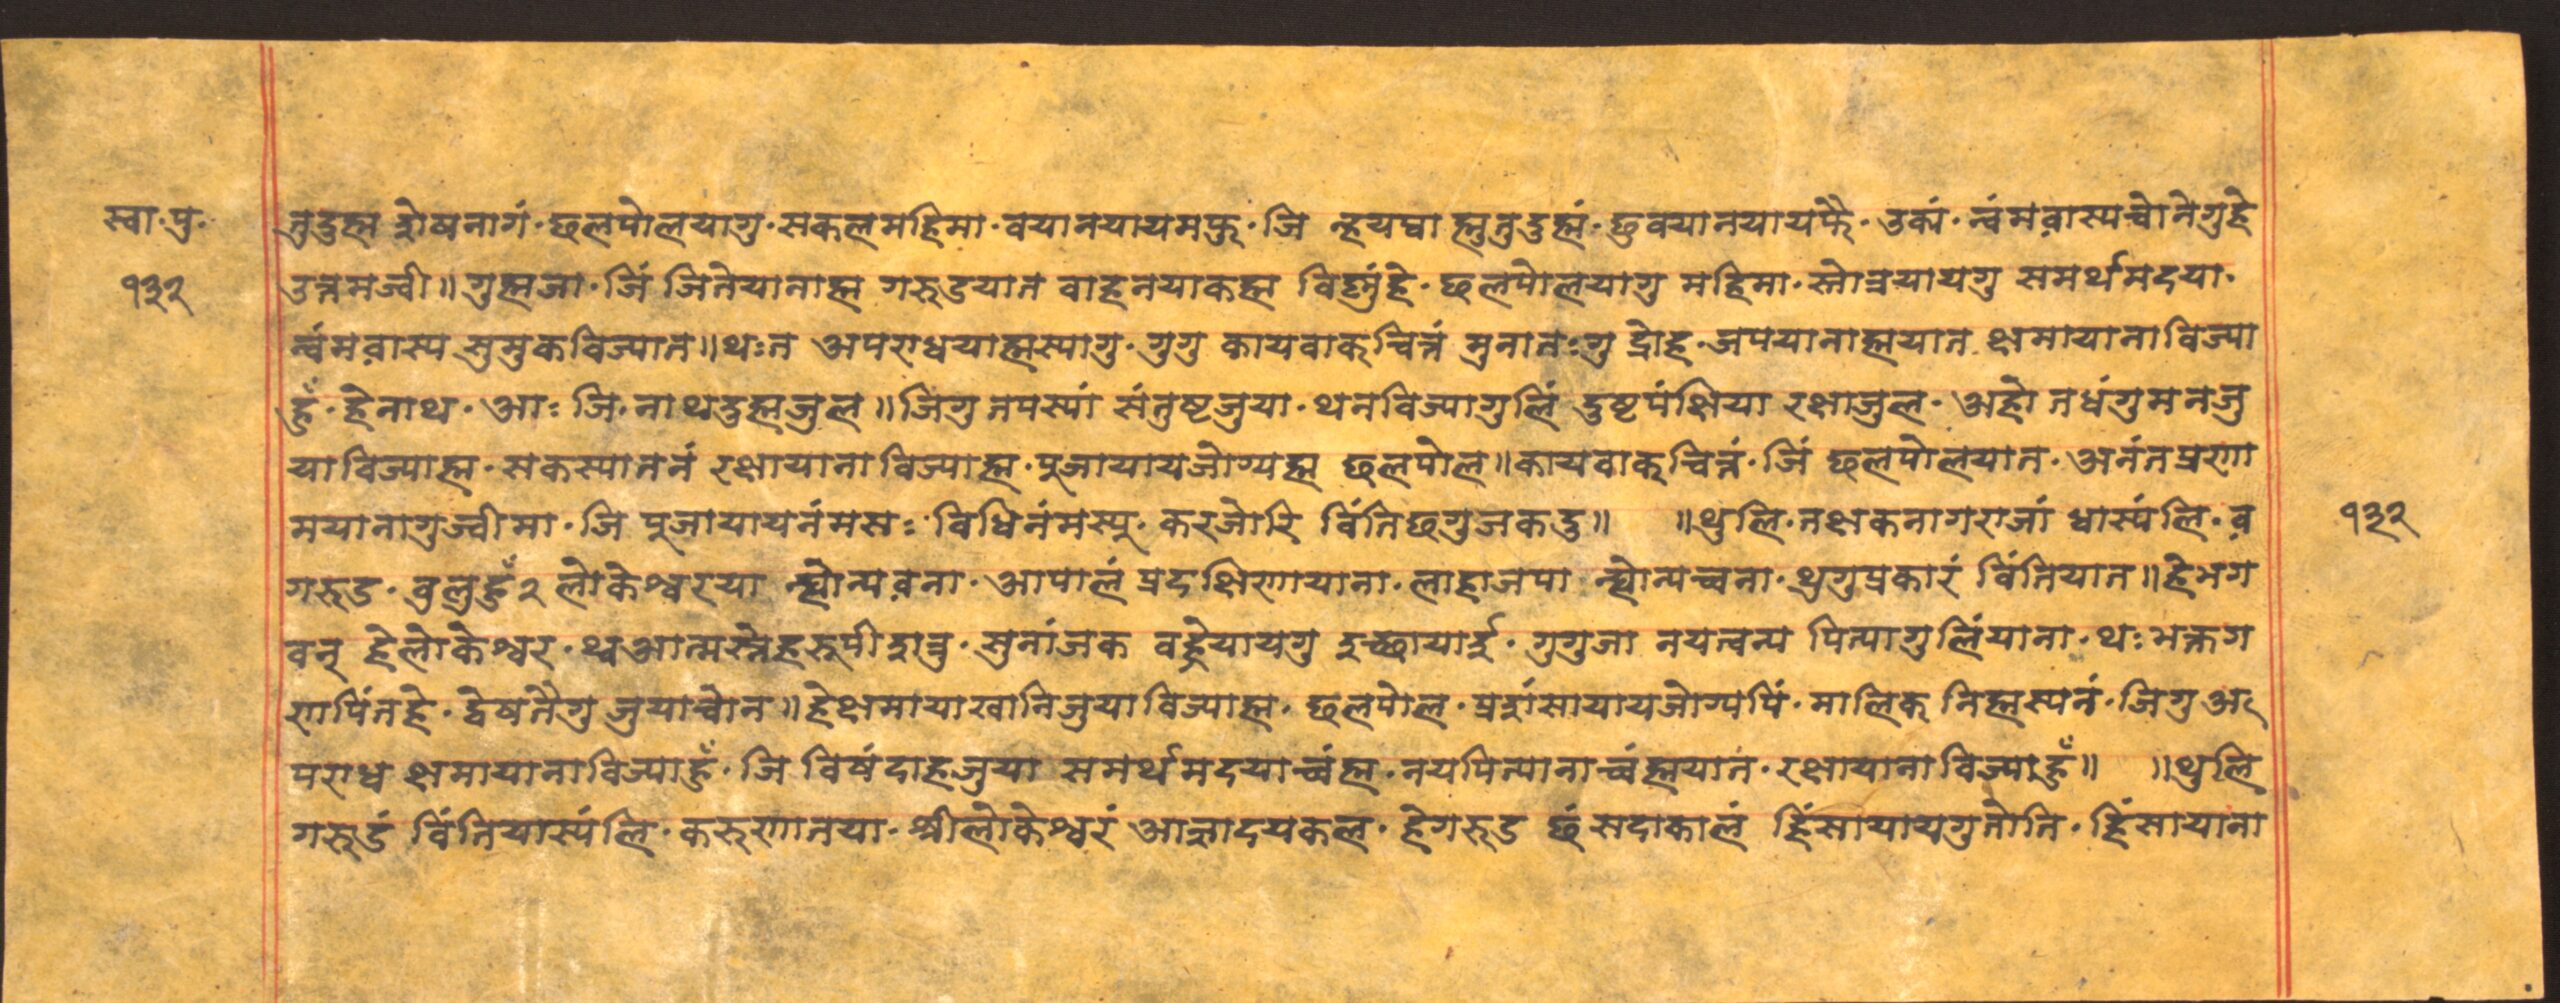 स्वा॰पु॰
१३२
तुदुह्म शेषनागं॰ छलपोलयागु॰ सकलमहिमा॰ वयानयायमफु॰ जि न्हयप्वा ह्मुतुदुह्मं॰ छुवयानयायफै॰ उक्यं॰ न्वंमवास्यच्वोनेगुहे
उत्तमज्वी॥ गुह्मजा॰ जिं जितेयानाह्म गरुडयात वाहनयाकह्म विष्णुंहे॰ छलपोलयागु महिमा॰ स्तोत्रयायगु समर्थमदया॰
न्वंमवास्य सुमुकविज्यात॥ थःत अपराधयाह्मस्यागु॰ गुगु कायवाक्चित्तं मुनातःगु द्रोह॰ जपयानाह्मयात क्षमायानाविज्या
हुँ॰ हेनाथ॰ आः जि॰ नाथदुह्मजुल॥ जिगु तपस्यां संतुष्टजुया॰ थनविज्यागुलिं दुष्टपंक्षिया रक्षाजुल॰ अहो तधंगुमनजु
याविज्याह्म॰ सकस्यातनं रक्षायानाविज्याह्म॰ पुजायायजोग्यह्म छलपोल॥ कायवाक्चित्तं॰ जिं छलपोलयात॰ अनंतप्रणा
मयानागुज्वीमा॰ जि पुजायायनंमसः विधिनंमस्यू॰ करजोरि विंतिछगुजकदु॥ ॥थुलि॰ तक्षकनागराजां धास्यंलि॰ व
गरुड॰ व्रुलुहुँ२ लोकेश्वरया न्ह्योन्यवना॰ आपालं प्रदक्षिणायाना॰ लाहाजपा न्ह्योन्यच्वना॰ थुगुप्रकारं विंतियात॥ हेभग
वन् हेलोकेश्वर॰ थ्वआत्मस्नेहरूपी शत्रु॰ सुनांजक वह्रेयायगु इच्छायाई॰ गुगुजा नयत्वन्य पित्यागुलिंयाना॰ थः भक्तग
णपिंतहे॰ द्वेषतैगु जुयाच्वोन॥ हेक्षमायाखानिजुयाविज्याह्म॰ छलपोल॰ प्रशंसायायजोग्यपिं॰ मालिक् निह्मस्यनं॰ जिगु अ
पराध क्षमायानाविज्याहुँ॰ जि विषंदाहजुया समर्थमदयाच्वंह्म॰ नयपित्यानाच्वंह्मयात॰ रक्षायानाविज्याहुँ॥ ॥थुलि
गरुडं विंतियास्यंलि॰ करुणातया॰ श्रीलोकेश्वरं आज्ञादयकल॰ हेगरुड छं सदाकालं हिंसायायगुतोति॰ हिंसायाना
१३२